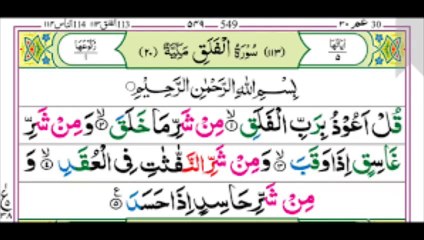 عم ٣٠ 30 549 ٥٤٩ 113 الفلق ١١٣ 114 الناس ١١٤
اٰیاتها ٥ (١١٣) سُوْرَةُ الْفَلَقِ مَكِّيَّةٌ (٢٠) رکوعها ١
بِسْمِ اللّٰهِ الرَّحْمٰنِ الرَّحِيْمِ
قُلْ اَعُوْذُ بِرَبِّ الْفَلَقِ ۙ‏﴿۱﴾ مِنْ شَرِّ مَا خَلَقَ ۙ‏﴿۲﴾ وَ مِنْ شَرِّ
غَاسِقٍ اِذَا وَقَبَ ۙ‏﴿۳﴾ وَ مِنْ شَرِّ النَّفّٰثٰتِ فِى الْعُقَدِ ۙ‏﴿۴﴾ وَ
مِنْ شَرِّ حَاسِدٍ اِذَا حَسَدَ ‏﴿۵﴾ ع